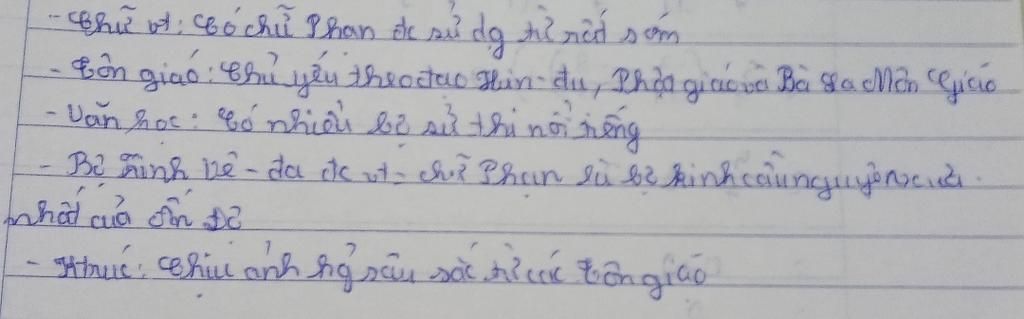 - Chữ vt: Có chữ Phạn đc sử dg từ rất sớm
- Tôn giáo: Chủ yếu theo đạo Hin-đu, Phật giáo và Bà La Môn Giáo
- Văn học: Có nhiều bộ sử thi nổi tiếng
- Bộ kinh Vê-đa đc vt = chữ Phạn là bộ kinh cầu nguyện xưa
nhất của Ấn Độ
- Ktrúc: Chịu ảnh hg sâu sắc từ các tôn giáo